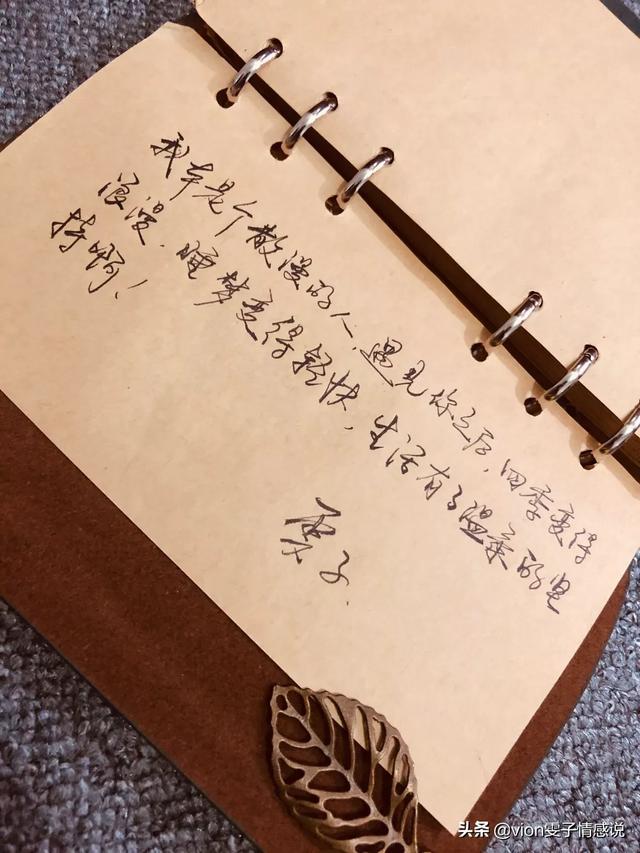 我本是个散漫的人，遇见你之后，四季变得
浪漫，睡梦变得轻快，生活有了温柔的坚
持啊！
雯子.
头条 @vion雯子情感说